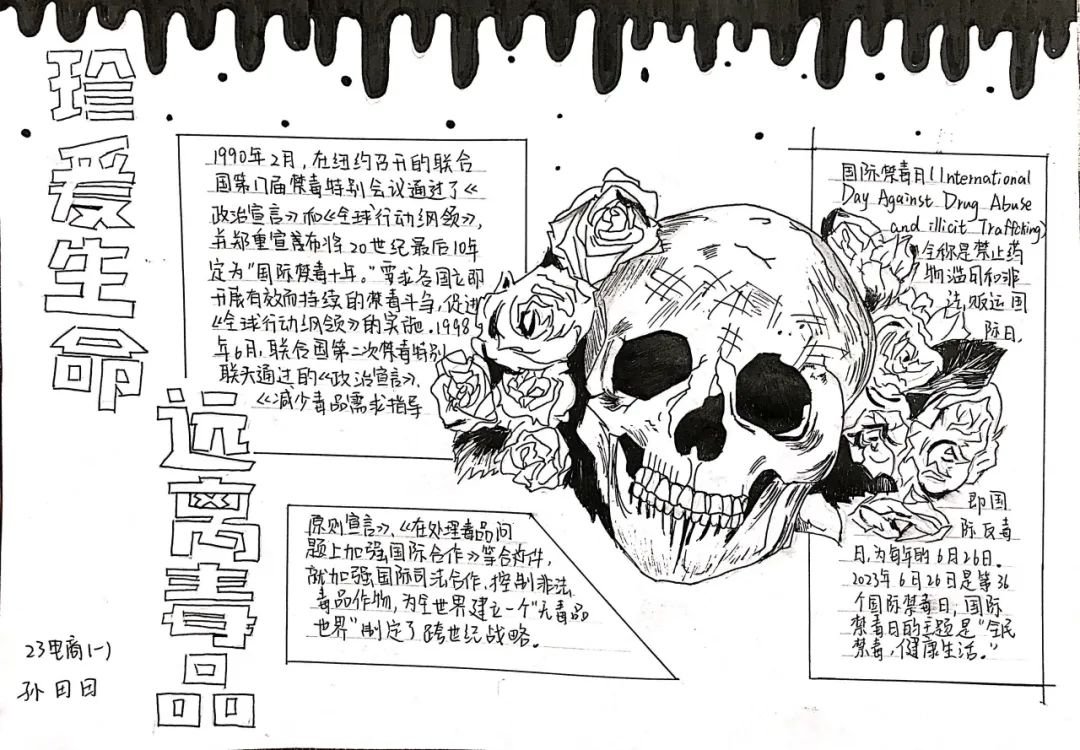 珍爱生命
远离毒品
1990年2月,在纽约召开的联合
国第十八届禁毒特别会议通过了《
政治宣言》和《全球行动纲领》,
并郑重宣布将20世纪最后10年
定为"国际禁毒十年。"要求各国立即
开展有效而持续的禁毒斗争,促进
《全球行动纲领》的实施.1998
年6月,联合国第二次禁毒特别
联大通过的《政治宣言》、
《减少毒品需求指导
原则宣言》、《在处理毒品问
题上加强国际合作》等合文件,
就加强国际司法合作、控制非法
毒品作物,为全世界建立一个"无毒品
世界"制定了跨世纪战略。
国际禁毒日(International
Day Against Drug Abuse
and illicit Trafficking)
全你是禁止药
物滥用和非
法贩运国
际日.
即国
际反毒
日,为每年的6月26日.
2023年6月26日是第36
个国际禁毒日,国际
禁毒日的主题是"全民
禁毒,健康生活。"
23电商(一)
孙田田